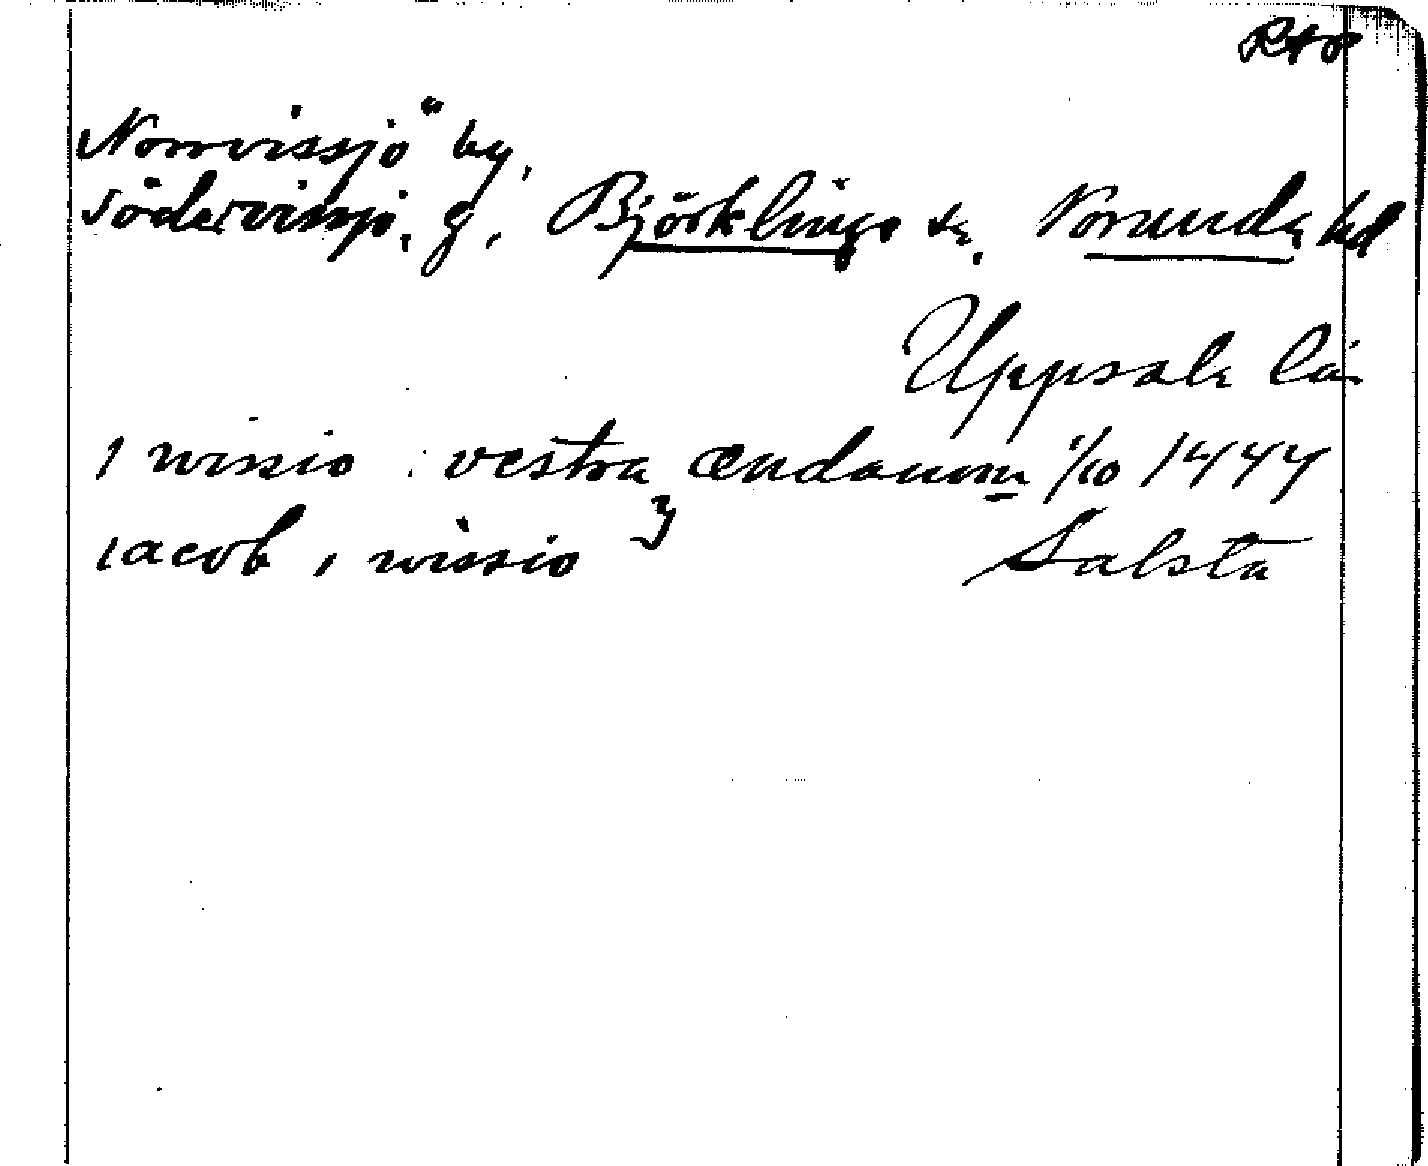 RAP
Norrvissjö by,
Södervissjö, g, Björklinge sn. Norunda hd
Uppsala län
i wissio i vestra ændanom 1/10 1447
iacob i wissio
Salsta